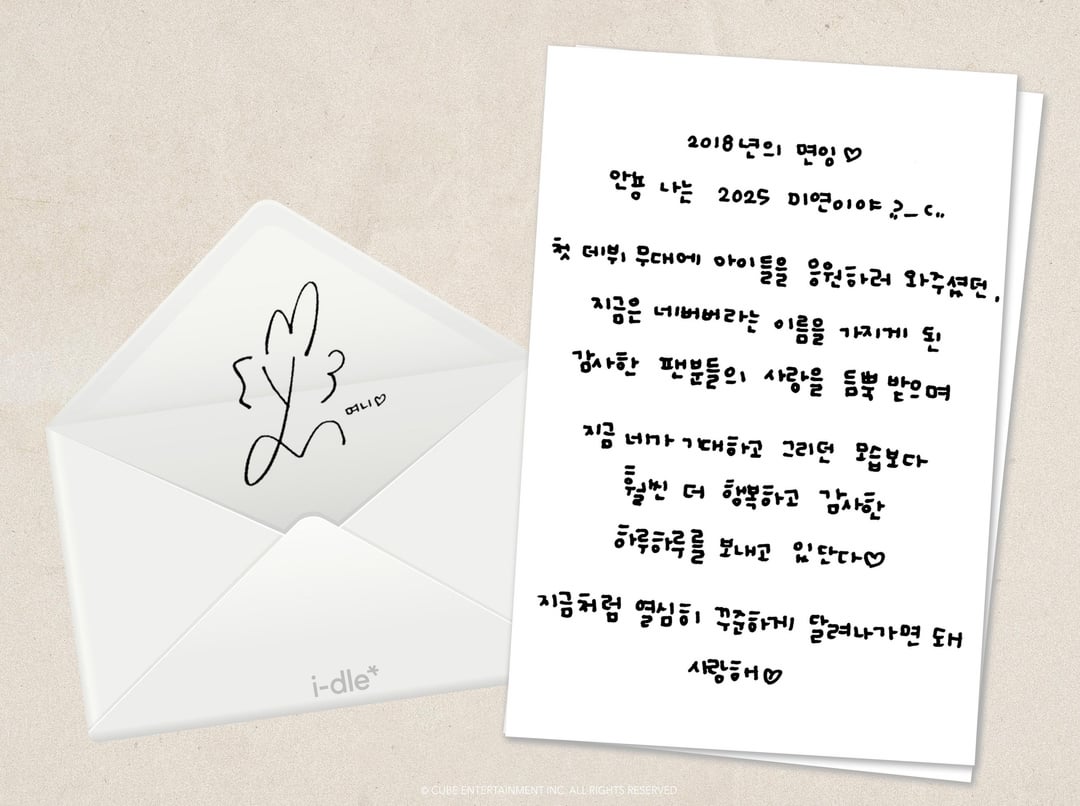 며니♡
i-dle*
2018년의 면잉♡
안뇽 나는 2025 미연이야
첫 데뷔 무대에 아이들을 응원하러 와주셨던,
지금은 네버버라는 이름을 가지게 된
감사한 팬분들의 사랑을 듬뿍 받으며
지금 네가 기대하고 그리던 모습보다
훨씬 더 행복하고 감사한
하루하루를 보내고 있단다♡
지금처럼 열심히 꾸준하게 달려나가면 돼
사랑해♡
© CUBE ENTERTAINMENT INC. ALL RIGHTS RESERVED